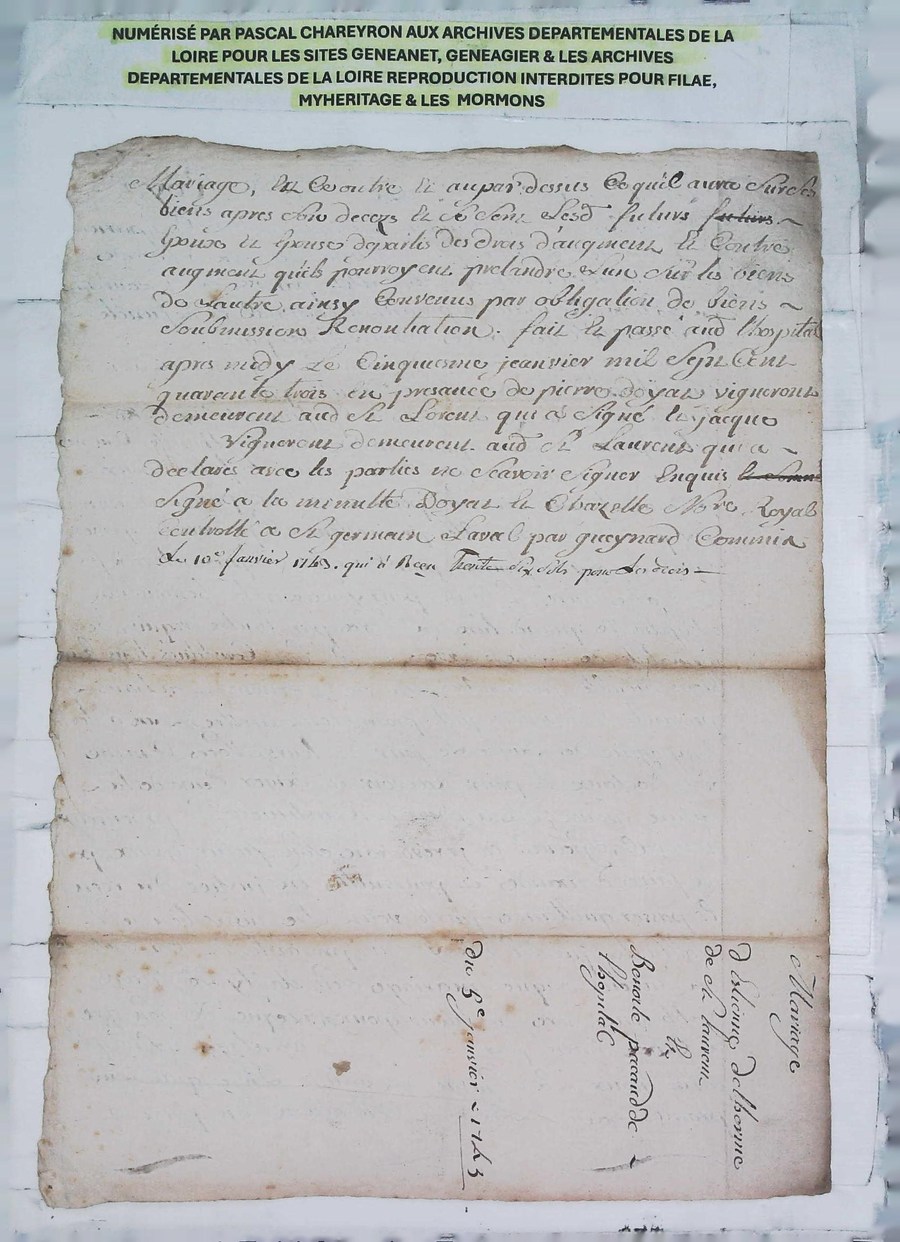 NUMÉRISÉ PAR PASCAL CHAREYRON AUX ARCHIVES DEPARTEMENTALES DE LA
LOIRE POUR LES SITES GENEANET, GENEAGIER & LES ARCHIVES
DEPARTEMENTALES DE LA LOIRE REPRODUCTION INTERDITES POUR FILAE,
MYHERITAGE & LES MORMONS
Mariage, Et En outre Et aupar dessus Ce quil aura Sur Ses
biens apres Son deceps Et Se Sont Lesd futurs futurs
Epoux Et Epouse departis des drois d'augment Et Contre
augment quils pourroyent pretandre L'un Sur les biens
de L'autre ainsy Convenus par obligation de biens
Soubmission Renontiation. fait Et passé aud lhospital
apres midy Le Cinquiesme jeanvier mil Sept Cent
quarante trois en presance de pierre doyat vigneront
demeurent aud St Lorent qui a Signé Et jacque
Vigneront demeurent aud St Laurent qui a
declaré avec les parties ne Scavoir Signer Enquis
Signé a la minutte Doyat Et Chazelle No.re Royal
Controllé a St germain Laval par gueynard Commis
Le 10e Janvier 1743. qui a Receu Trente Six Sols pour Les drois
Mariage
d'Estienne delhorme
de St laurent
Et
Benoite pacaud de
l'hopital
du 5e janvier 1743